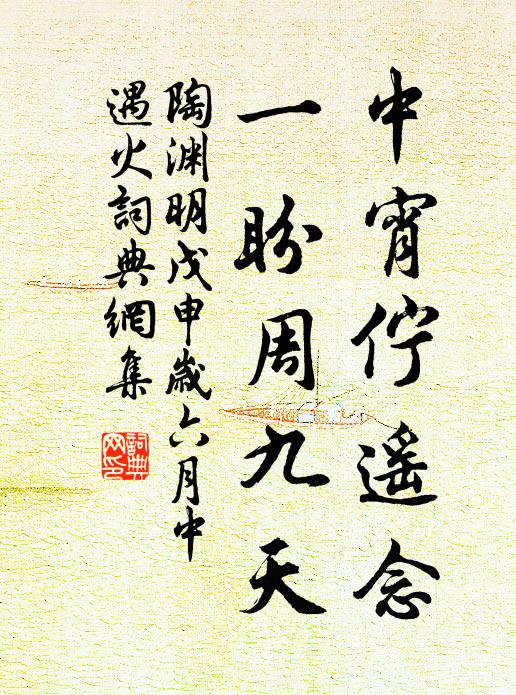 中宵佇遥念
一盼周九天
陶渊明戊申歲六月中
遇火詞典網集
詞典网印